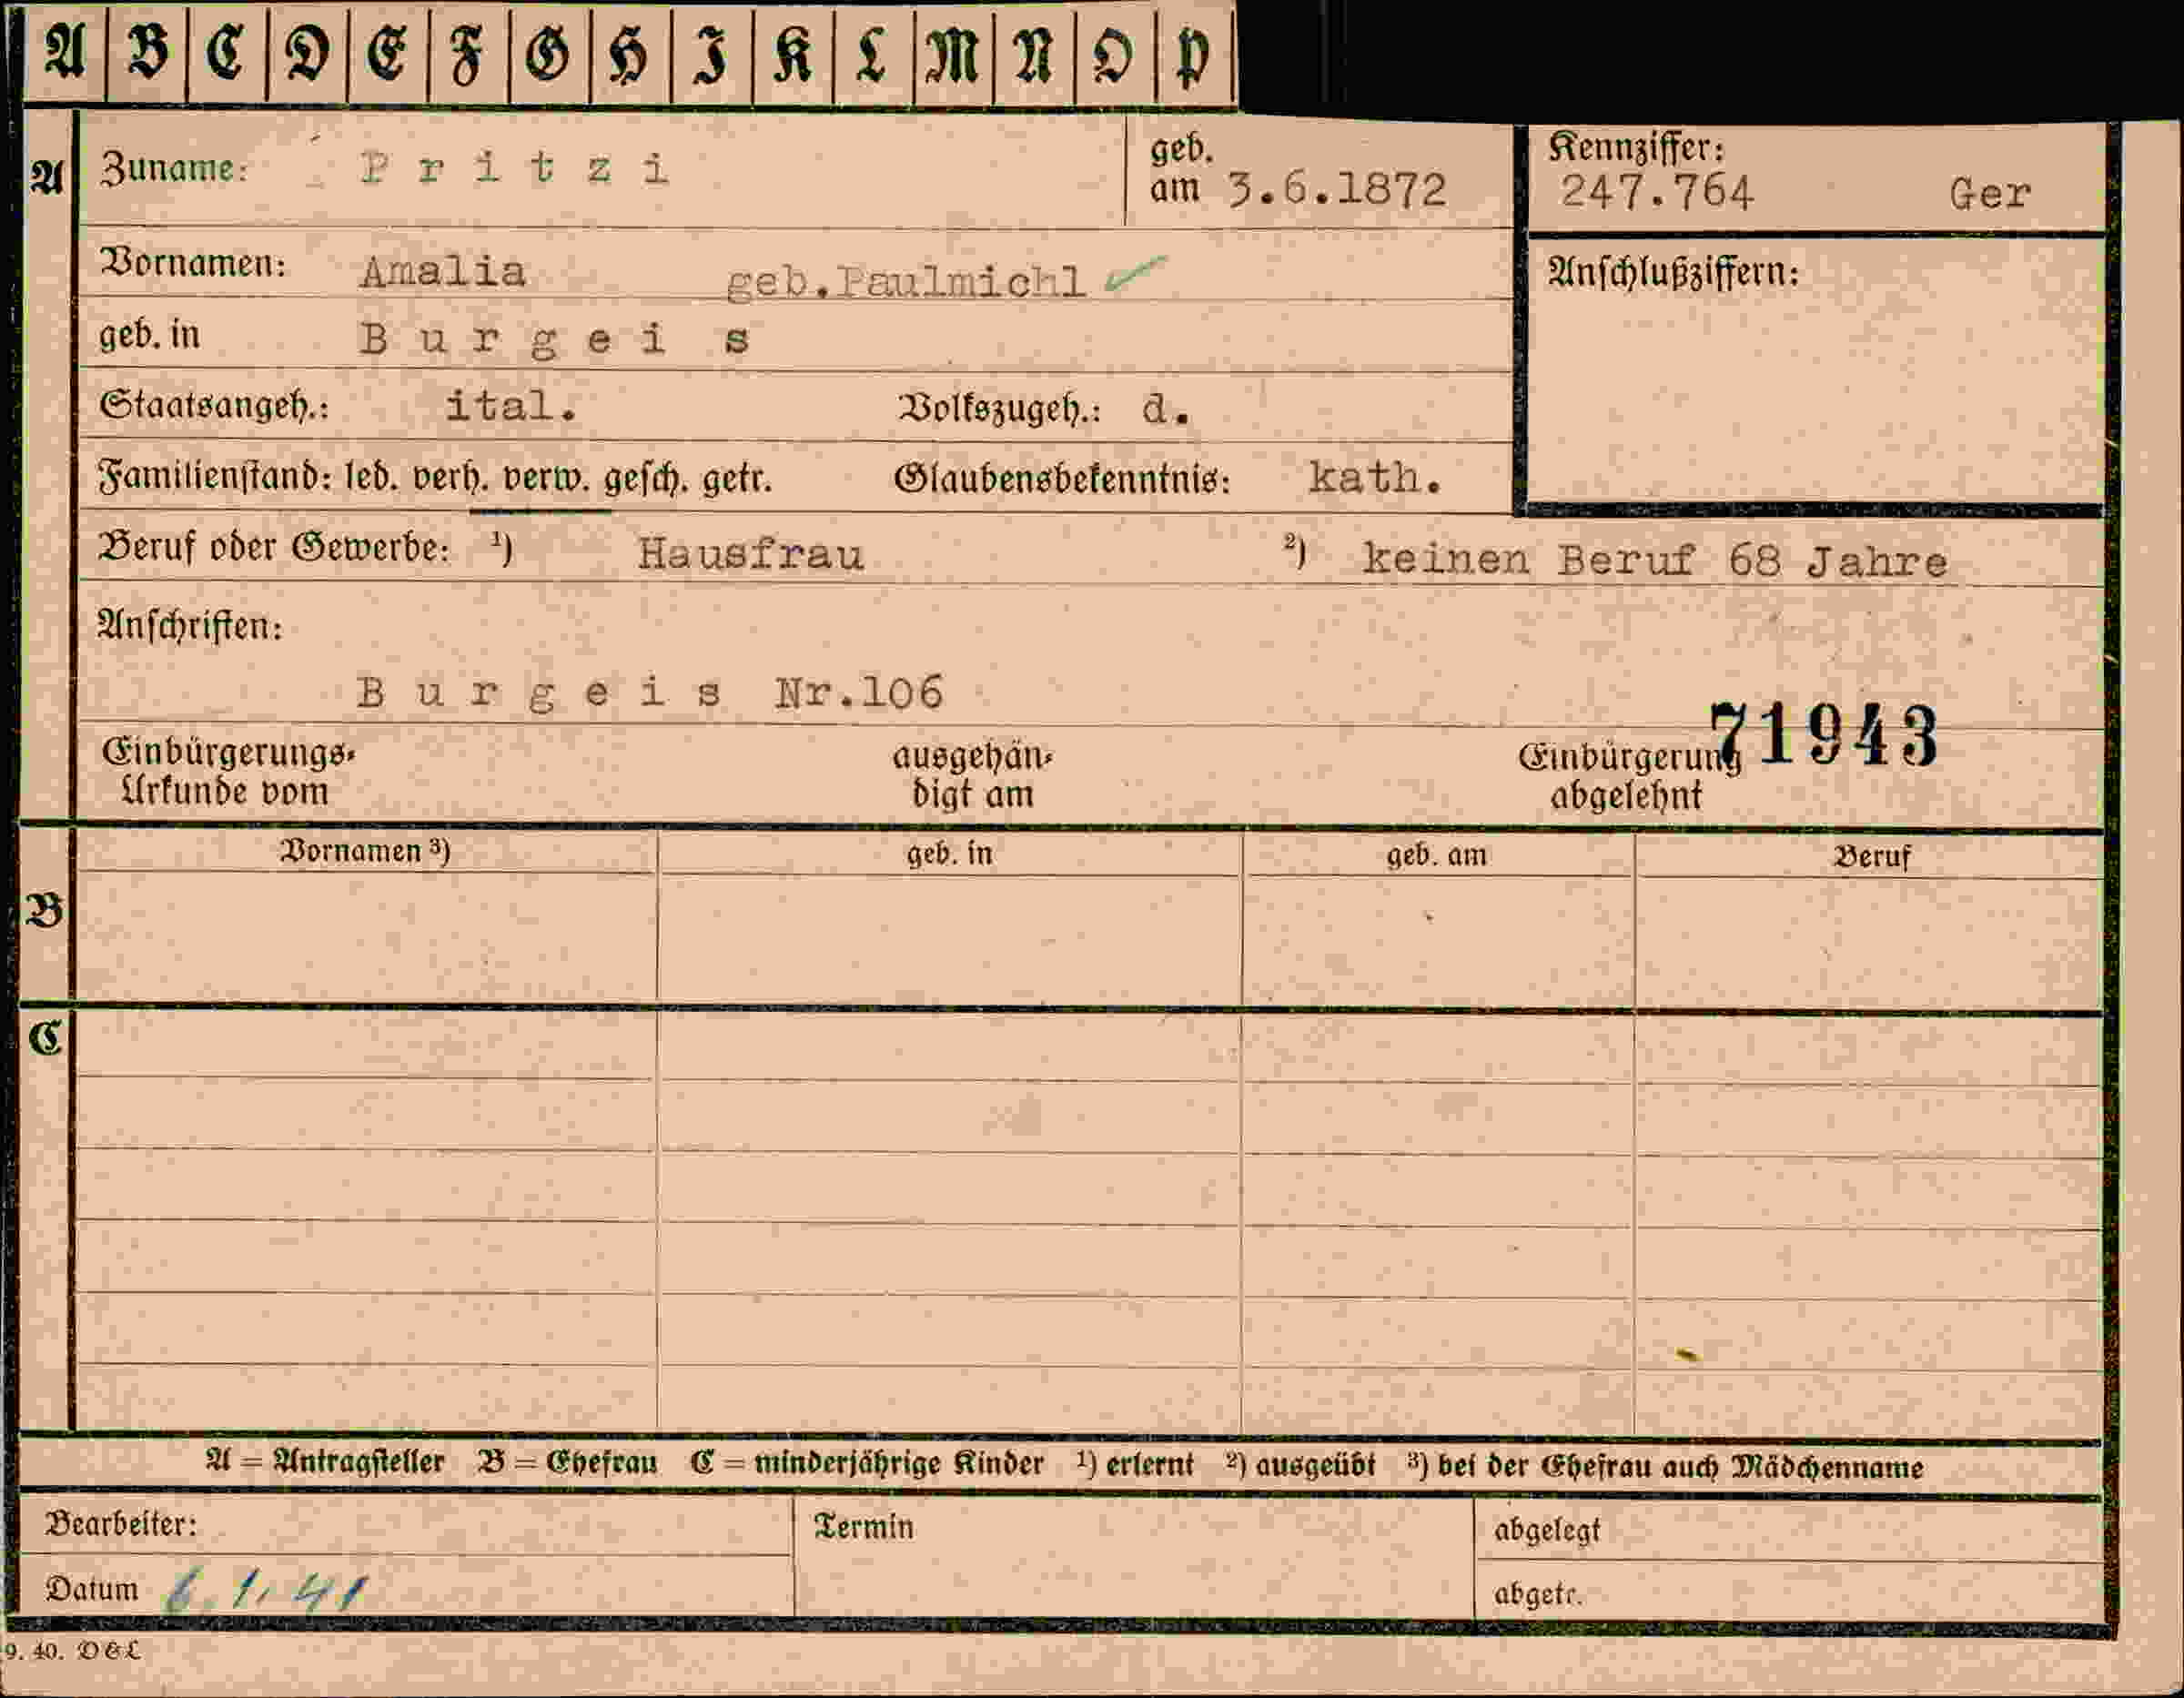 A B C D E F G H I K L M N O P
A Zuname: Pritzi geb. am 3.6.1872 Kennziffer: 247.764 Ger
Vornamen: Amalia geb.Paulmichl ✓ Anschlußziffern:
geb. in Burgeis
Staatsangeh.: ital. Volkszugeh.: d.
Familienstand: led. verh. verw. gesch. getr. Glaubensbekenntnis: kath.
Beruf oder Gewerbe: ¹) Hausfrau ²) keinen Beruf 68 Jahre
Anschriften:
Burgeis Nr.106
71943
Einbürgerungs-Urkunde vom ausgehändigt am Einbürgerung abgelehnt
Vornamen ³) geb. in geb. am Beruf
B
C
A = Antragsteller B = Ehefrau C = minderjährige Kinder ¹) erlernt ²) ausgeübt ³) bei der Ehefrau auch Mädchenname
Bearbeiter: Termin abgelegt
Datum 6.1.41 abgetr.
9. 40. D & L